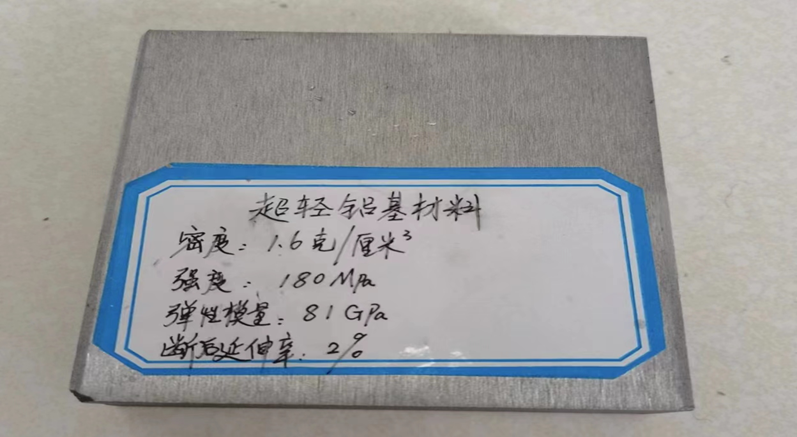 超轻铝基材料
密度：1.6克/厘米³
强度：180MPa
弹性模量：81GPa
断后延伸率：2%